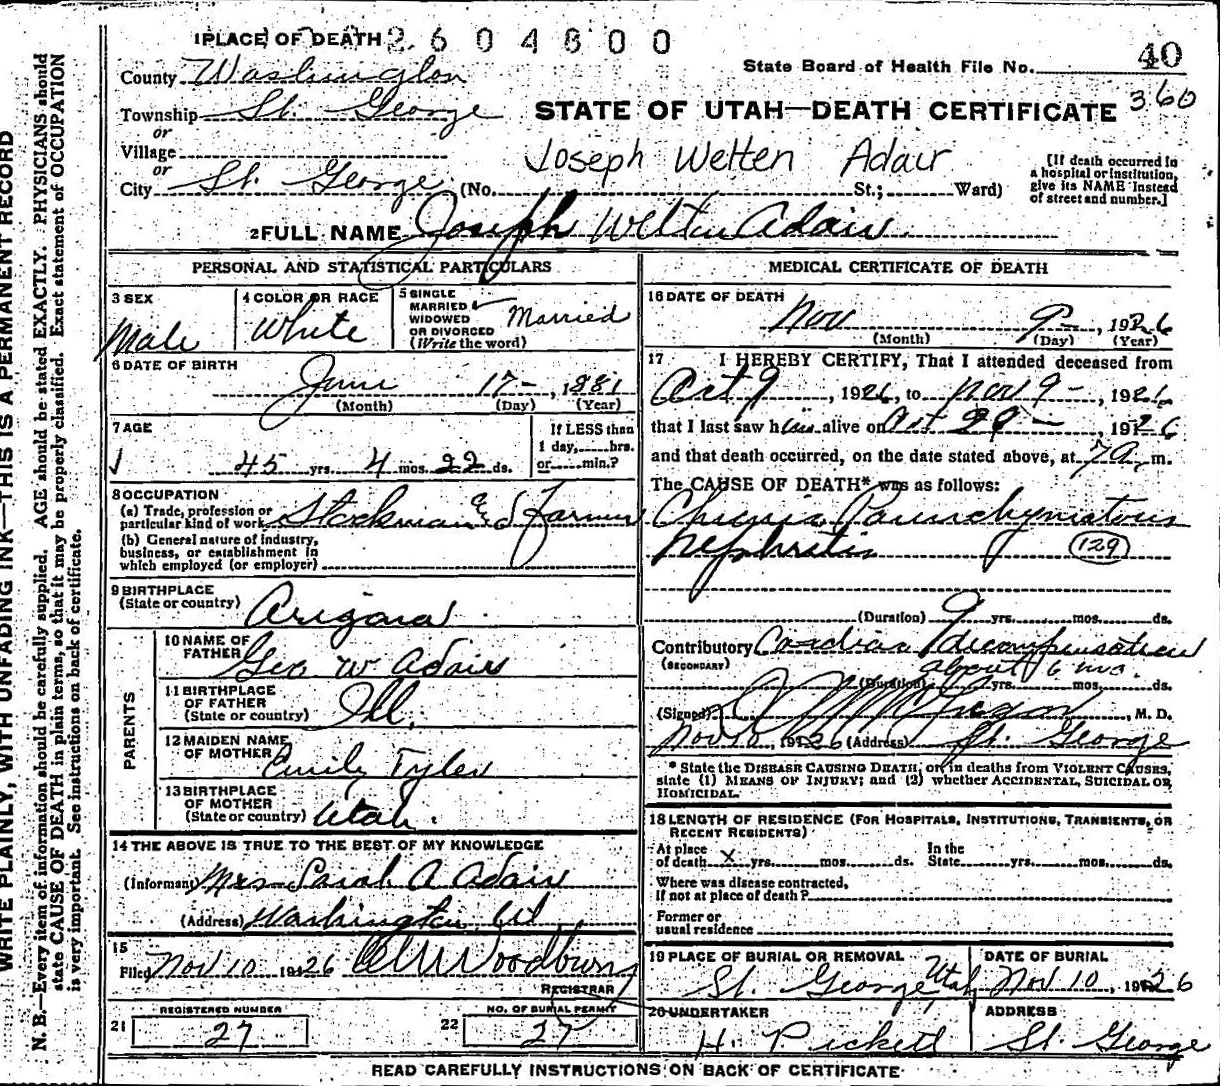 WRITE PLAINLY, WITH UNFADING INK—THIS IS A PERMANENT RECORD
N. B.—Every item of information should be carefully supplied. AGE should be stated EXACTLY. PHYSICIANS should
state CAUSE OF DEATH in plain terms, so that it may be properly classified. Exact statement of OCCUPATION
is very important. See instructions on back of certificate.
1 PLACE OF DEATH 2604800
County Washington
Township St. George
or
Village
or
City St. George (No. St.; Ward)
State Board of Health File No. 40
360
STATE OF UTAH—DEATH CERTIFICATE
Joseph Welten Adair
[If death occurred in
a hospital or institution,
give its NAME instead
of street and number.]
2 FULL NAME Joseph Welten Adair
PERSONAL AND STATISTICAL PARTICULARS
3 SEX
Male
4 COLOR OR RACE
White
5 SINGLE
MARRIED
WIDOWED
OR DIVORCED
(Write the word)
Married
6 DATE OF BIRTH
June 17-, 1881
(Month) (Day) (Year)
7 AGE
45 yrs. 4 mos. 22 ds.
If LESS than
1 day, hrs.
or min.?
8 OCCUPATION
(a) Trade, profession or
particular kind of work Stockman and Farmer
(b) General nature of industry,
business, or establishment in
which employed (or employer)
9 BIRTHPLACE
(State or country) Arizona
PARENTS
10 NAME OF
FATHER Geo W Adair
11 BIRTHPLACE
OF FATHER
(State or country) Ill.
12 MAIDEN NAME
OF MOTHER Emily Tyler
13 BIRTHPLACE
OF MOTHER
(State or country) Utah.
14 THE ABOVE IS TRUE TO THE BEST OF MY KNOWLEDGE
(Informant) Mrs Sarah A Adair
(Address) Washington, Ut
15
Filed Nov 10 1926 Woodbury
REGISTRAR
REGISTERED NUMBER
21 27
NO. OF BURIAL PERMIT
22 27
MEDICAL CERTIFICATE OF DEATH
16 DATE OF DEATH
Nov 9-, 1926
(Month) (Day) (Year)
17 I HEREBY CERTIFY, That I attended deceased from
Oct 9, 1926, to Nov 9-, 1926
that I last saw him alive on Oct 29-, 1926
and that death occurred, on the date stated above, at 7 a. m.
The CAUSE OF DEATH* was as follows:
Chronic Parenchymatous
Nephritis 129
(Duration) 9 yrs. mos. ds.
Contributory Cardiac decompensation
(SECONDARY) about 6 mo.
(Duration) yrs. mos. ds.
(Signed) McGregor, M. D.
Nov 10, 1926 (Address) St. George
* State the DISEASE CAUSING DEATH, or, in deaths from VIOLENT CAUSES,
state (1) MEANS OF INJURY; and (2) whether ACCIDENTAL, SUICIDAL OR
HOMICIDAL.
18 LENGTH OF RESIDENCE (FOR HOSPITALS, INSTITUTIONS, TRANSIENTS, OR
RECENT RESIDENTS)
At place
of death X yrs. mos. ds.
In the
State yrs. mos. ds.
Where was disease contracted,
if not at place of death?
Former or
usual residence
19 PLACE OF BURIAL OR REMOVAL
St. George Utah
DATE OF BURIAL
Nov 10, 1926
20 UNDERTAKER
H. Pickett
ADDRESS
St. George
READ CAREFULLY INSTRUCTIONS ON BACK OF CERTIFICATE